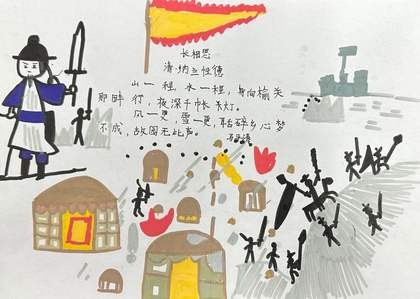 长相思
清·纳兰性德
山一程,水一程,身向榆关
那畔行,夜深千帐灯。
风一更,雪一更,聒碎乡心梦
不成,故园无此声。